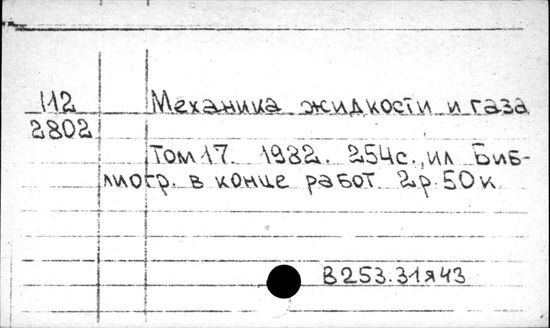 112 Механика жидкости и газа
2802
Том 17. 1982. 254с., ил Биб-
лиогр. в конце работ. 2р.50к
В253.31я43